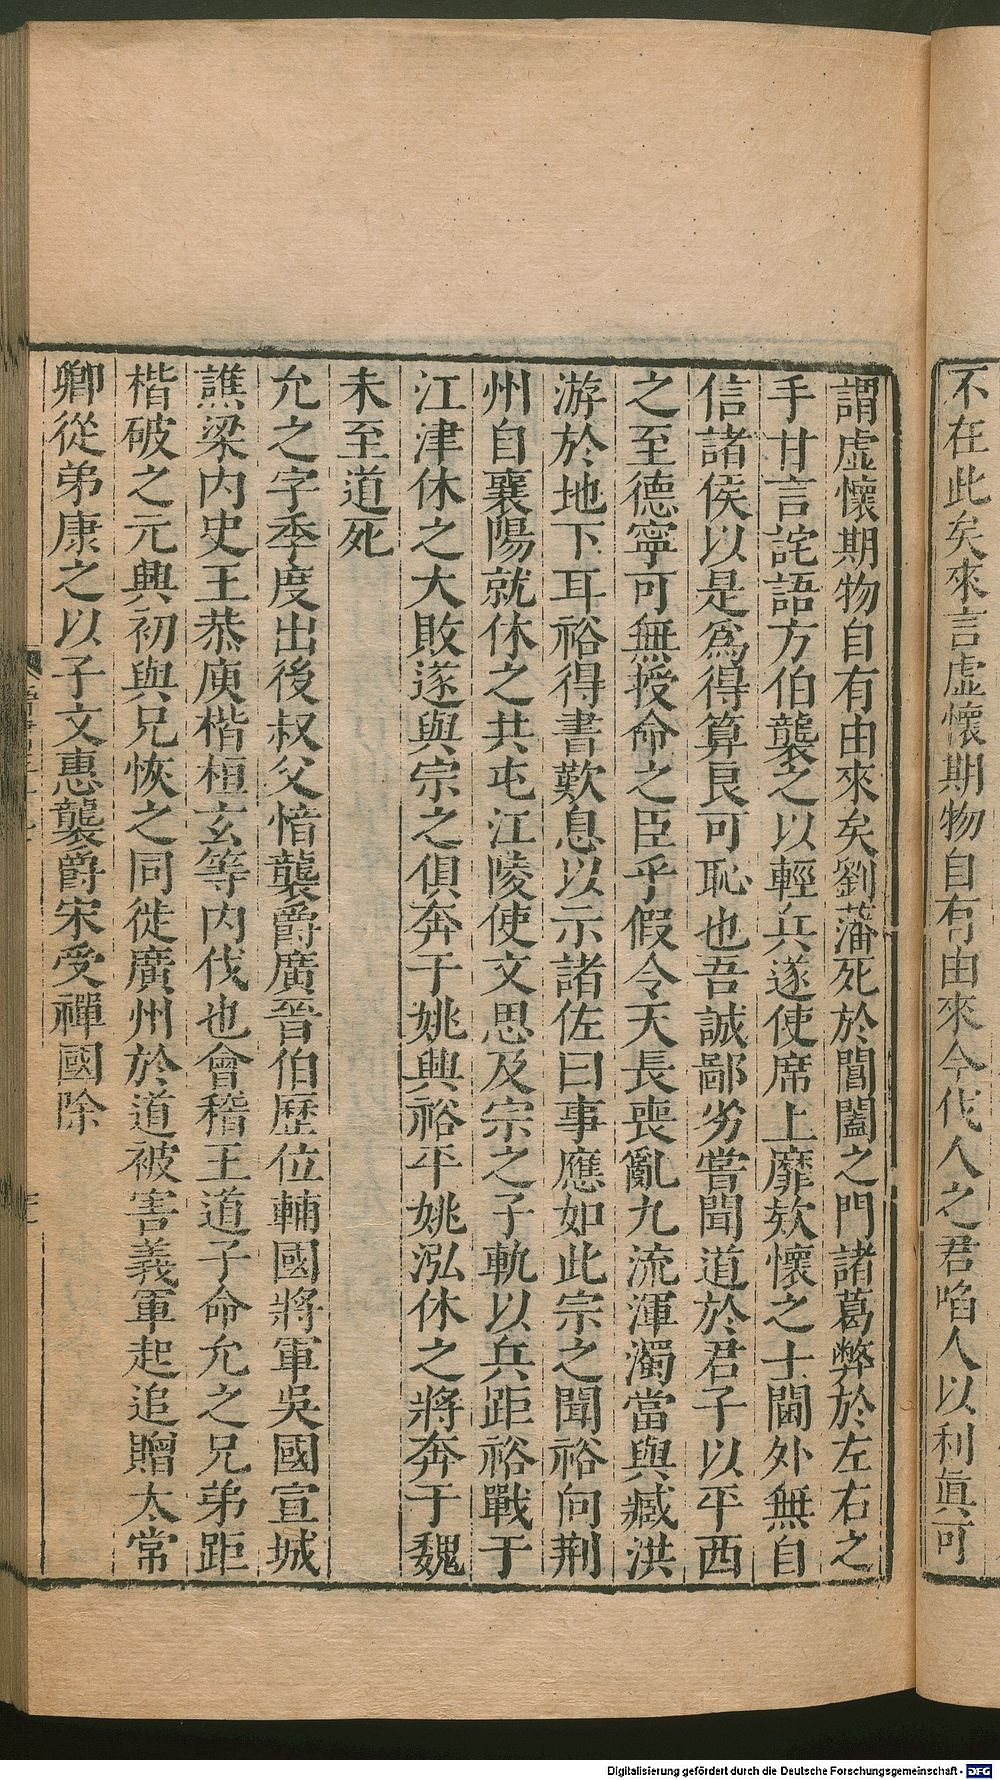 不在此矣來言虛懷期物自有由來今伐人之君啗人以利眞可
謂虛懷期物自有由來矣劉藩死於閶闔之門諸葛斃於左右之
手甘言詫語方伯襲之以輕兵遂使席上靡款懷之士閫外無自
信諸侯以是爲得算良可恥也吾誠鄙劣嘗聞道於君子以平西
之至德寧可無授命之臣乎假令天長喪亂九流渾濁當與臧洪
游於地下耳裕得書歎息以示諸佐曰事應如此宗之聞裕向荆
州自襄陽就休之共屯江陵使文思及宗之子軌以兵距裕戰于
江津休之大敗遂與宗之俱奔于姚興裕平姚泓休之將奔于魏
未至道死
允之字季度出後叔父愔襲爵廣晉伯歷位輔國將軍吳國宣城
譙梁内史王恭庾楷桓玄等内伐也會稽王道子命允之兄弟距
楷破之元興初與兄恢之同徙廣州於道被害義軍起追贈太常
卿從弟康之以子文惠襲爵宋受禪國除
Digitalisierung gefördert durch die Deutsche Forschungsgemeinschaft - DFG